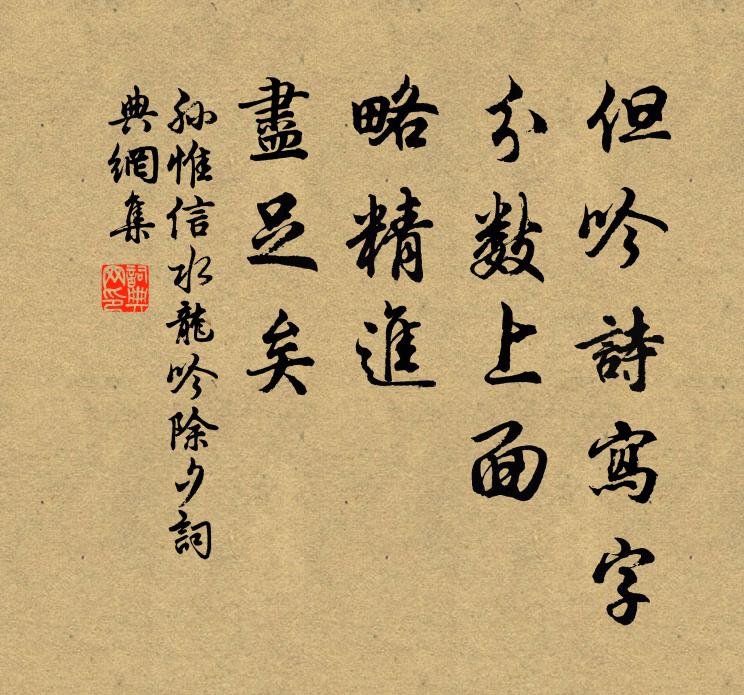 但吟詩寫字
分數上面
略精進
盡足矣
孫惟信水龍吟除夕詞
典網集
詞典
网印